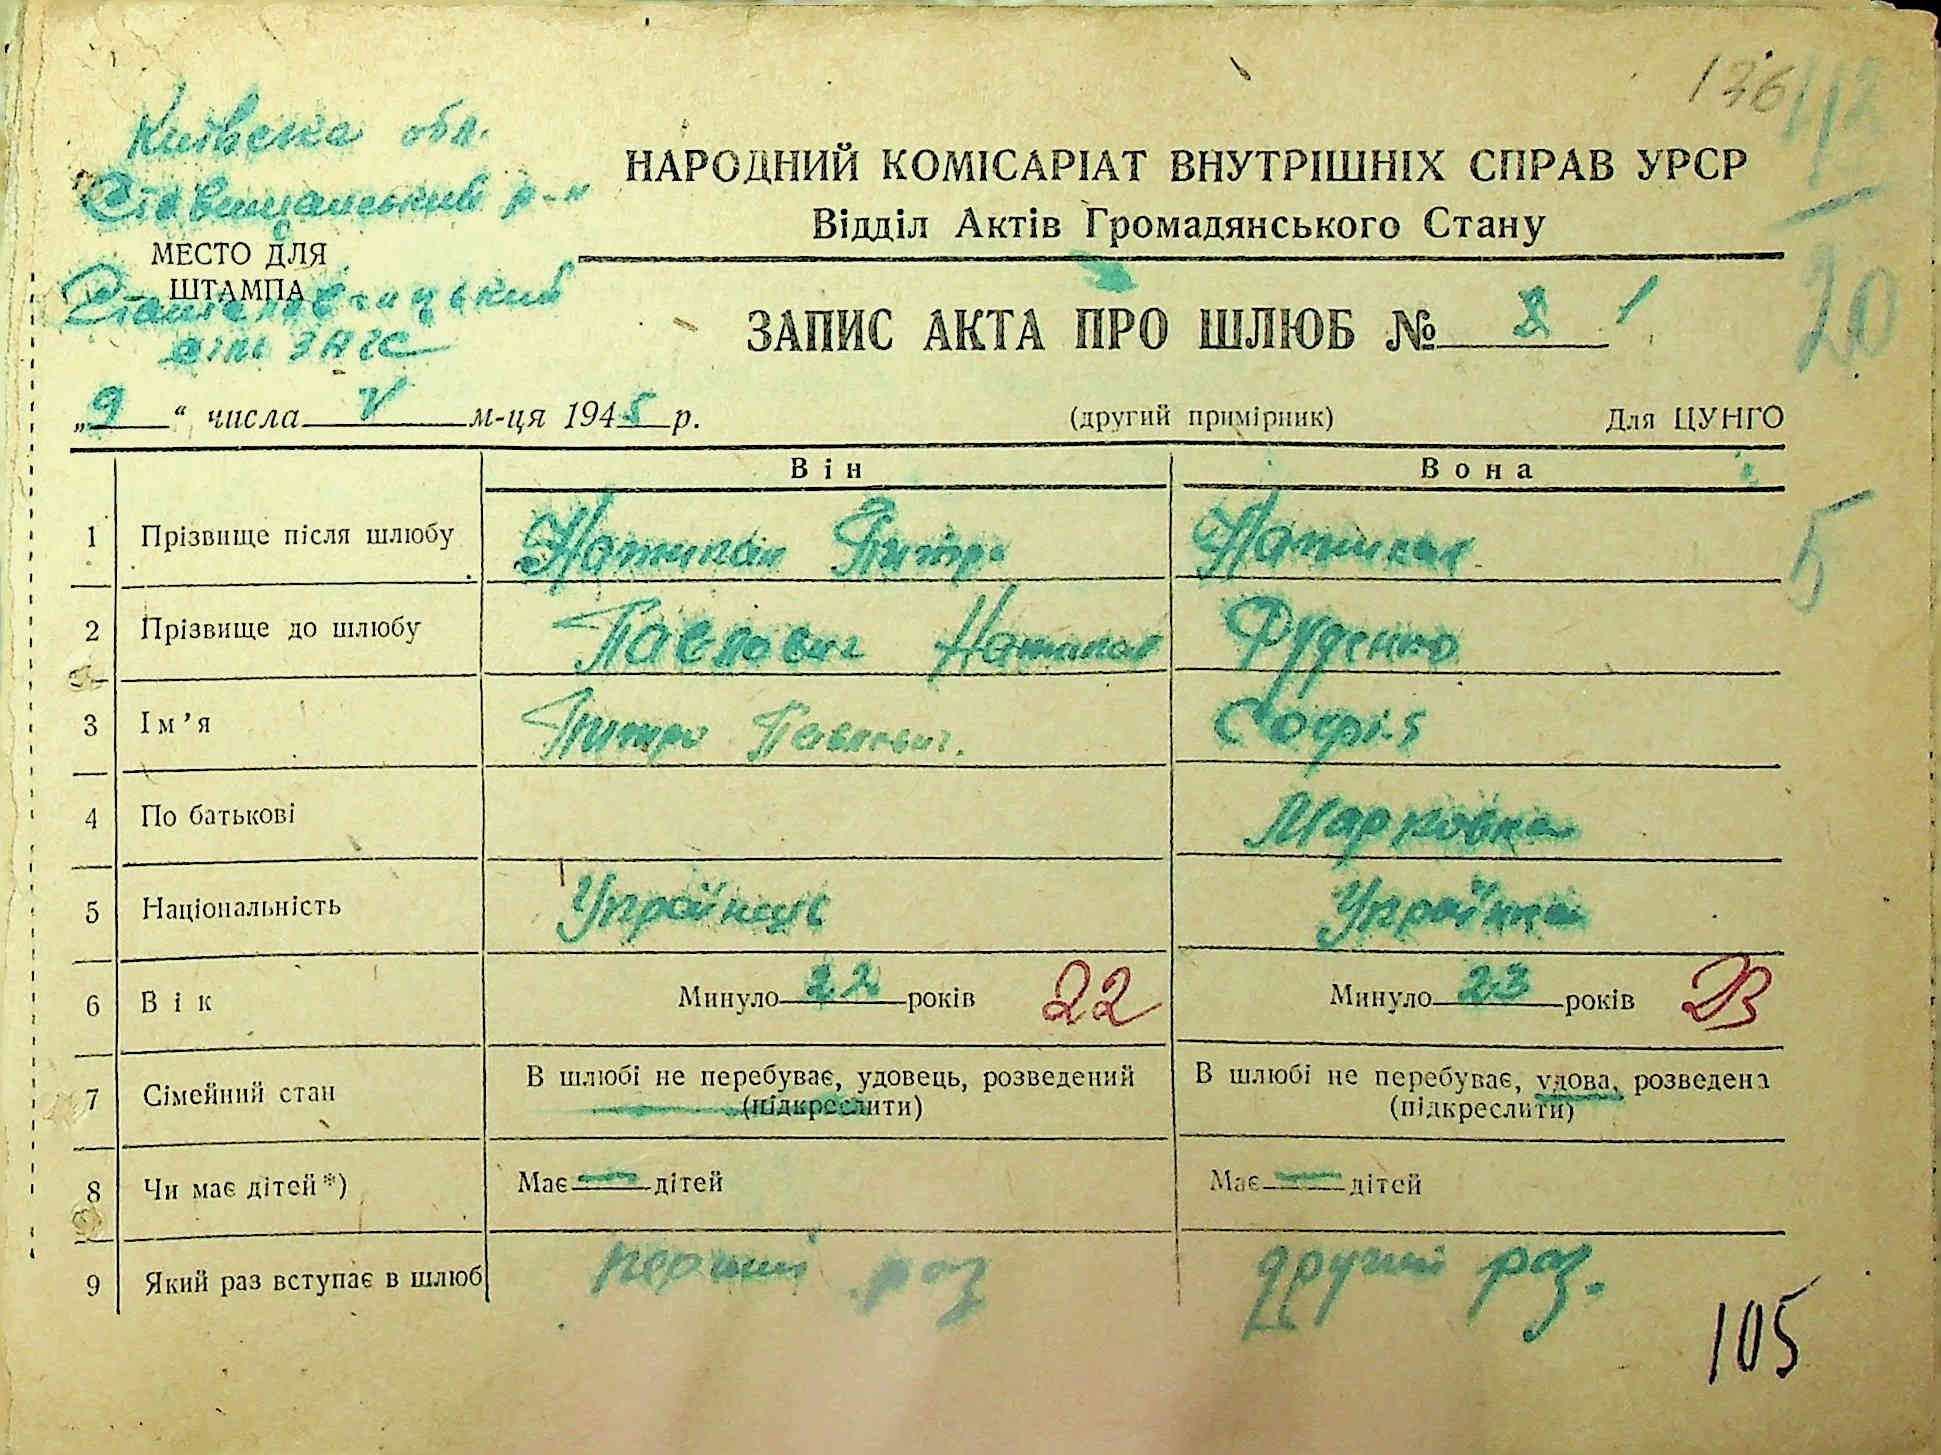 136
112
Київська обл.
Ставищанський р-н
МЕСТО ДЛЯ
ШТАМПА
сіль ЗАГС
20
НАРОДНИЙ КОМІСАРІАТ ВНУТРІШНІХ СПРАВ УРСР
Відділ Актів Громадянського Стану
ЗАПИС АКТА ПРО ШЛЮБ № 1
„9“ числа V м-ця 1945 р. (другий примірник) Для ЦУНГО
Він Вона
5
1 Прізвище після шлюбу
2 Прізвище до шлюбу Павлович Руденко
3 Ім’я Павлович. Софія
4 По батькові Марковна
5 Національність Українець Українка
6 Вік Минуло 22 років 22 Минуло 23 років 23
7 Сімейний стан В шлюбі не перебуває, удовець, розведений В шлюбі не перебуває, удова, розведена
(підкреслити) (підкреслити)
8 Чи має дітей*) Має — дітей Має — дітей
9 Який раз вступає в шлюб перший раз другий раз.
105